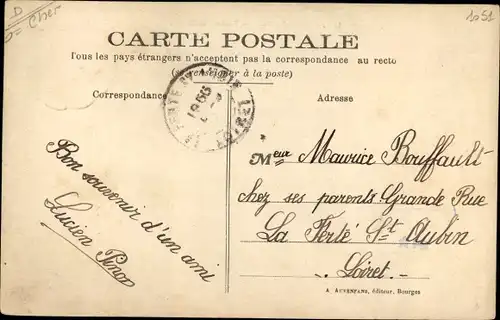 D
Cher
1051
CARTE POSTALE
Tous les pays étrangers n'acceptent pas la correspondance au recto
(se renseigner à la poste)
Correspondance
Adresse
Bon souvenir d'un ami
Lucien
Meur Maurice Bouffault
chez ses parents Grande Rue
La Ferté St Aubin
Loiret.
A. AUXENFANS, éditeur, Bourges